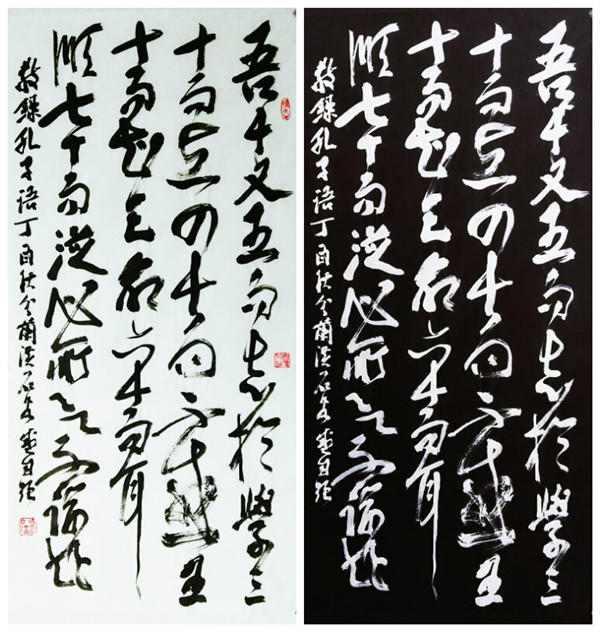 吾十又五而志於學三
十而立四十而不惑五
十而知天命六十而耳
順七十而從心所欲不踰矩
敬錄孔子語丁酉秋
吾十又五而志於學三
十而立四十而不惑五
十而知天命六十而耳
順七十而從心所欲不踰矩
敬錄孔子語丁酉秋